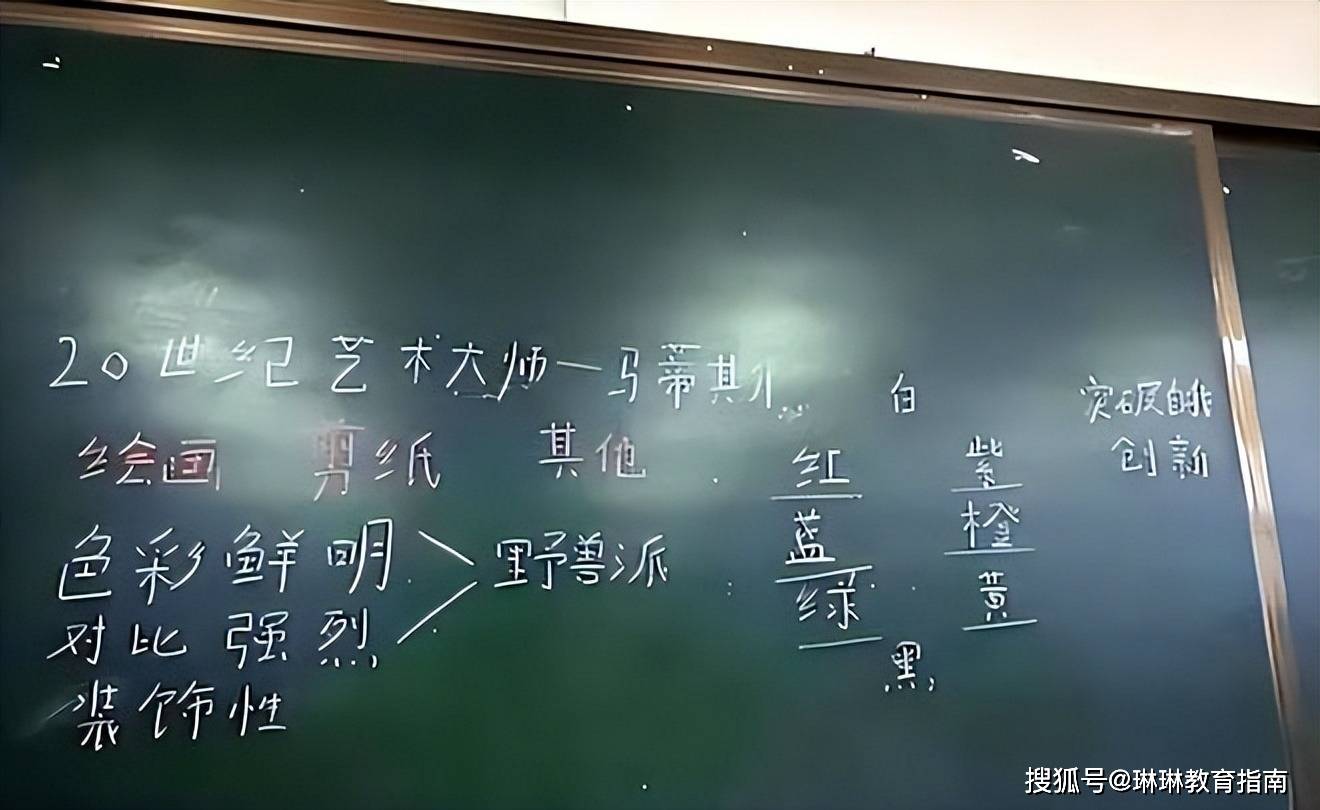 20世纪艺术大师一马蒂斯
绘画 剪纸 其他
色彩鲜明
对比强烈
野兽派
装饰性
白
红
蓝
绿
紫
橙
黄
黑
突破自我
创新
搜狐号@琳琳教育指南